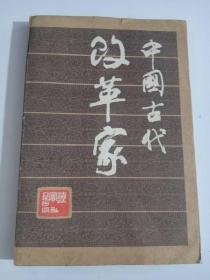 中國古代
改革家